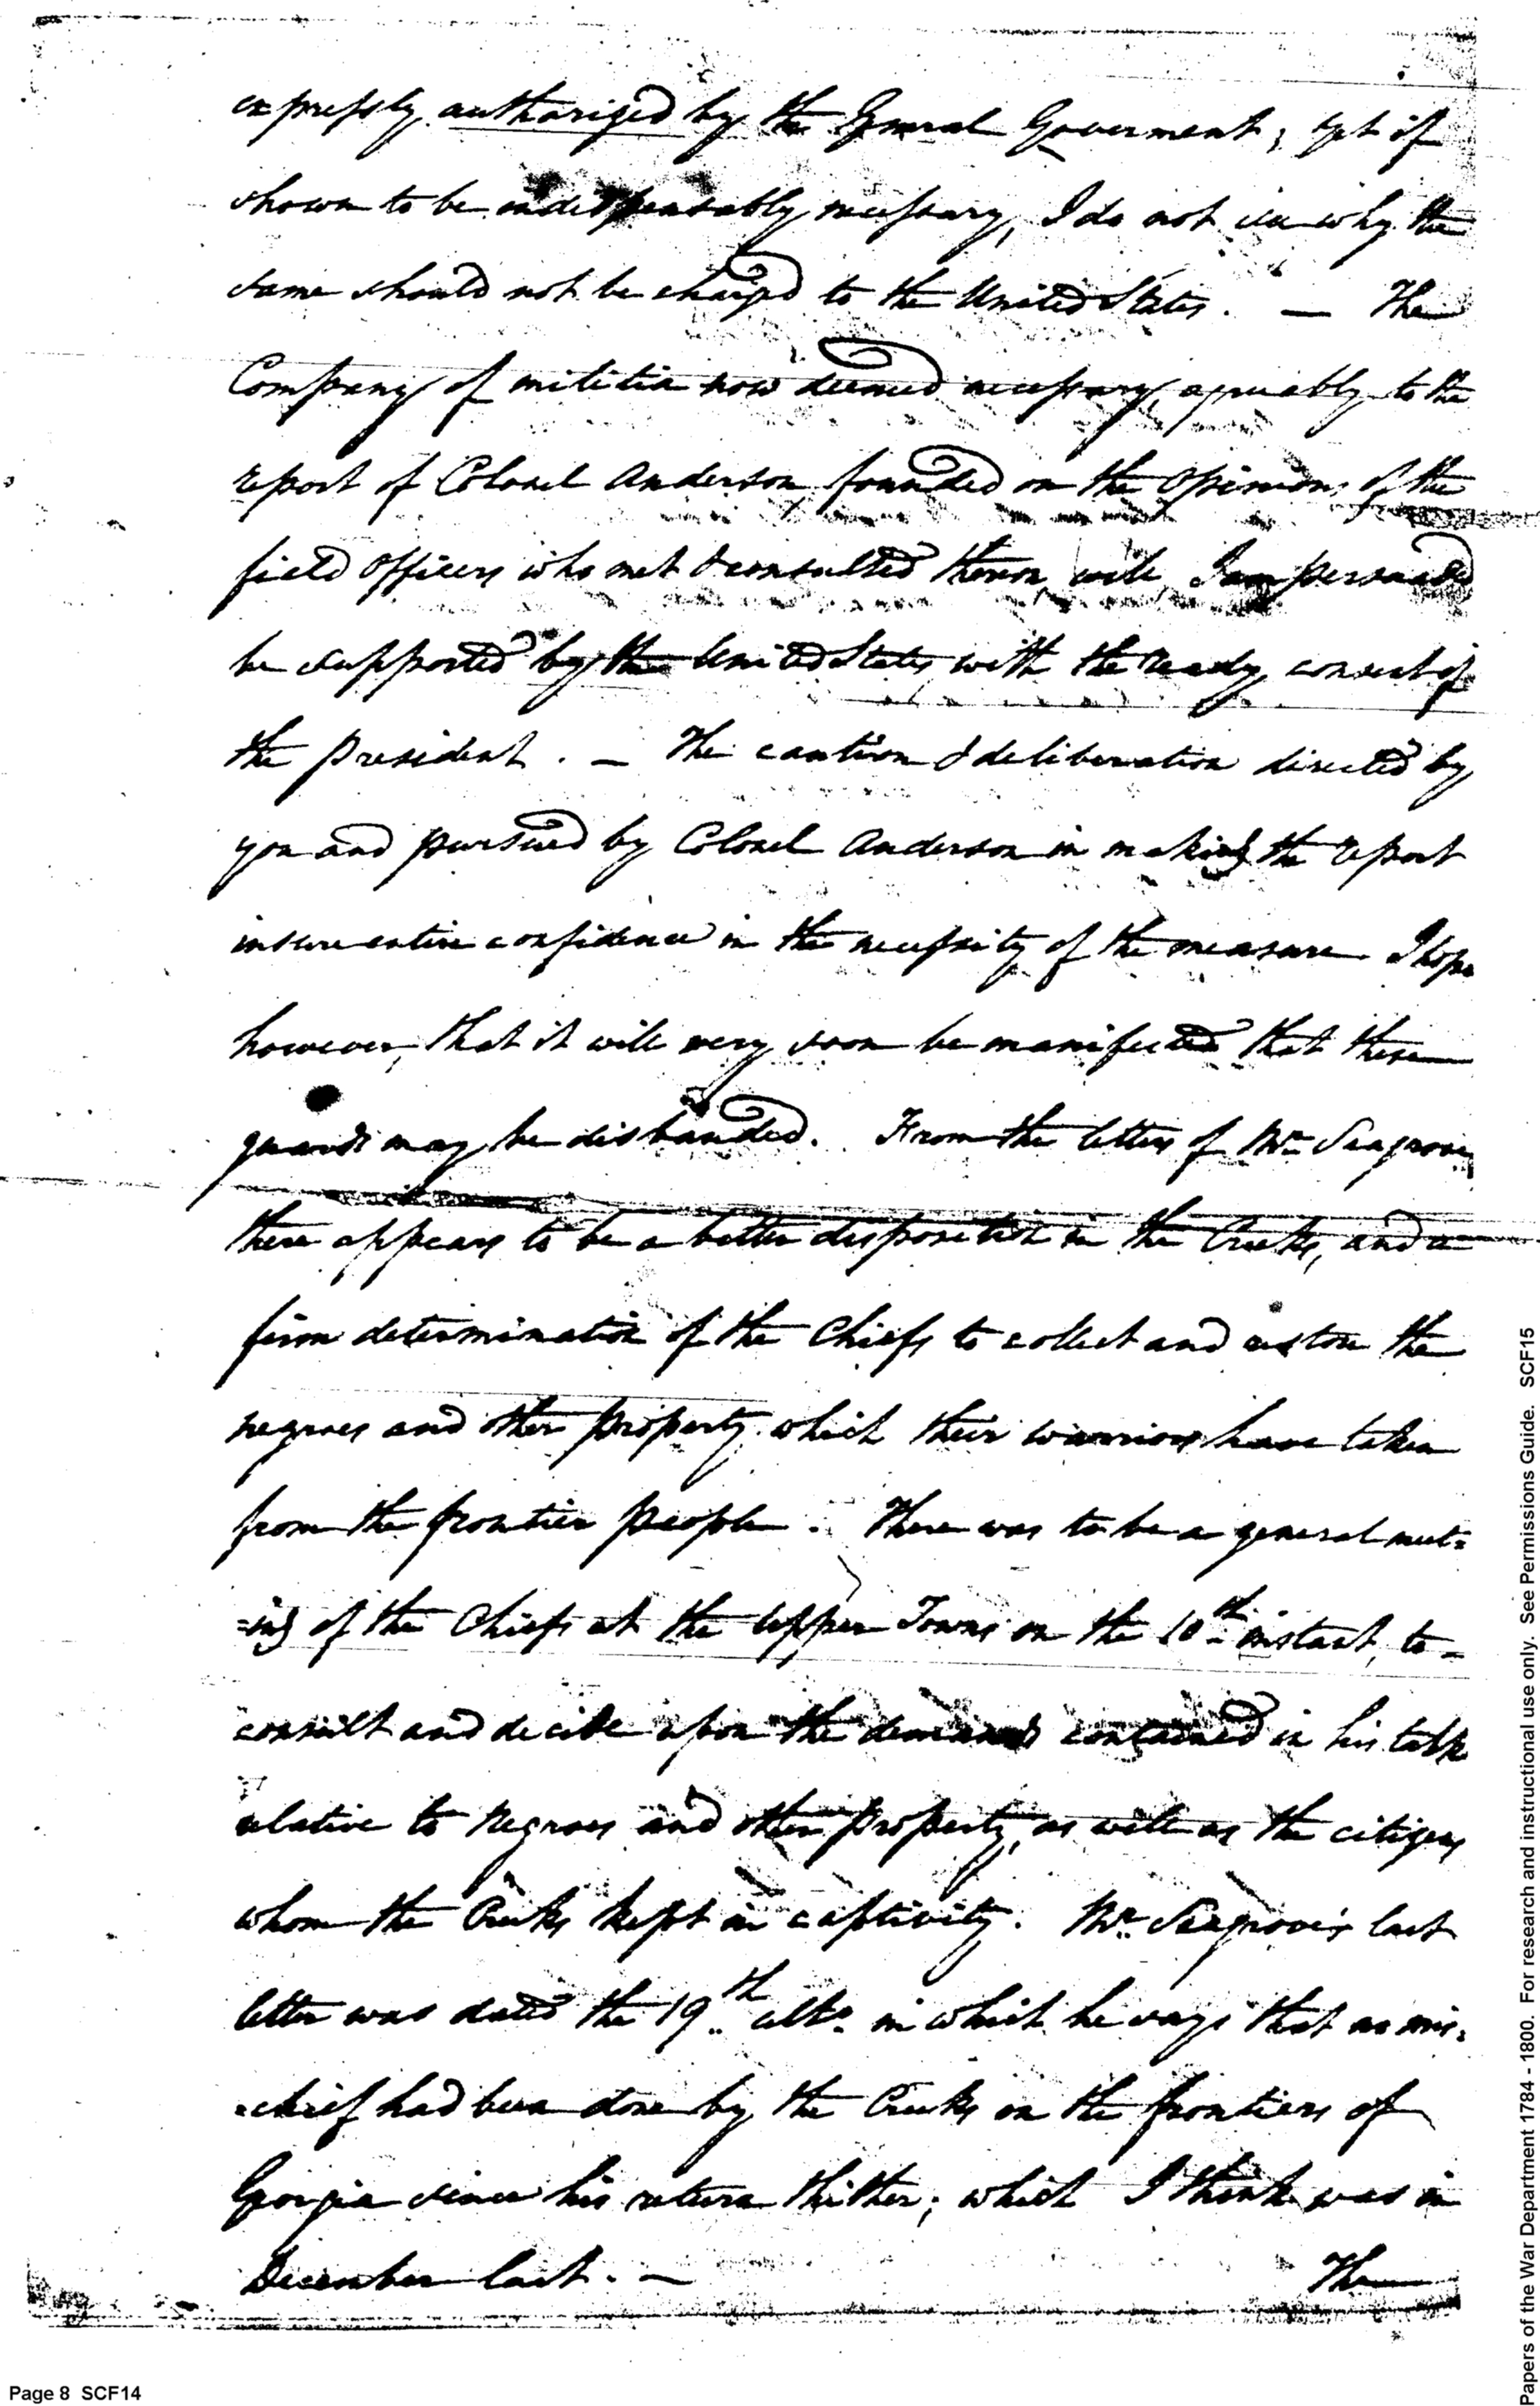 expressly authorized by the General Goverment; yet if
shown to be indispensably necessary, I do not see why the
same should not be charged to the United States. — The
Company of militia now deemed necessary, agreeably to the
report of Colonel Anderson, founded on the opinions of the
field officers who met & consulted thereon, will, I am persuaded
be supported by the United States, with the ready consent of
the president. — The caution & deliberation directed by
you and pursued by Colonel Anderson in making the report
insure entire confidence in the necessity of the measure. I hope
however, that it will very soon be manifested that these
guards may be disbanded. From the letters of Mr. Seagrove
there appears to be a better disposition in the Creeks, and a
firm determination of the Chiefs to collect and restore the
negroes and other property which their warriors have taken
from the frontier people. There was to be a general meet=
=ing of the Chiefs at the Upper Towns on the 10th instant, to
consult and decide upon the demands contained in his talk
relative to Negroes and other property, as well as the citizens
whom the Creeks kept in captivity. Mr. Seagrove's last
letter was dated the 19th ulto. in which he says that no mis=
=chief had been done by the Creeks on the frontiers of
Georgia since his return thither; which I think was in
December last. — The
Page 8 SCF14
Papers of the War Department 1784 - 1800. For research and instructional use only. See Permissions Guide. SCF15